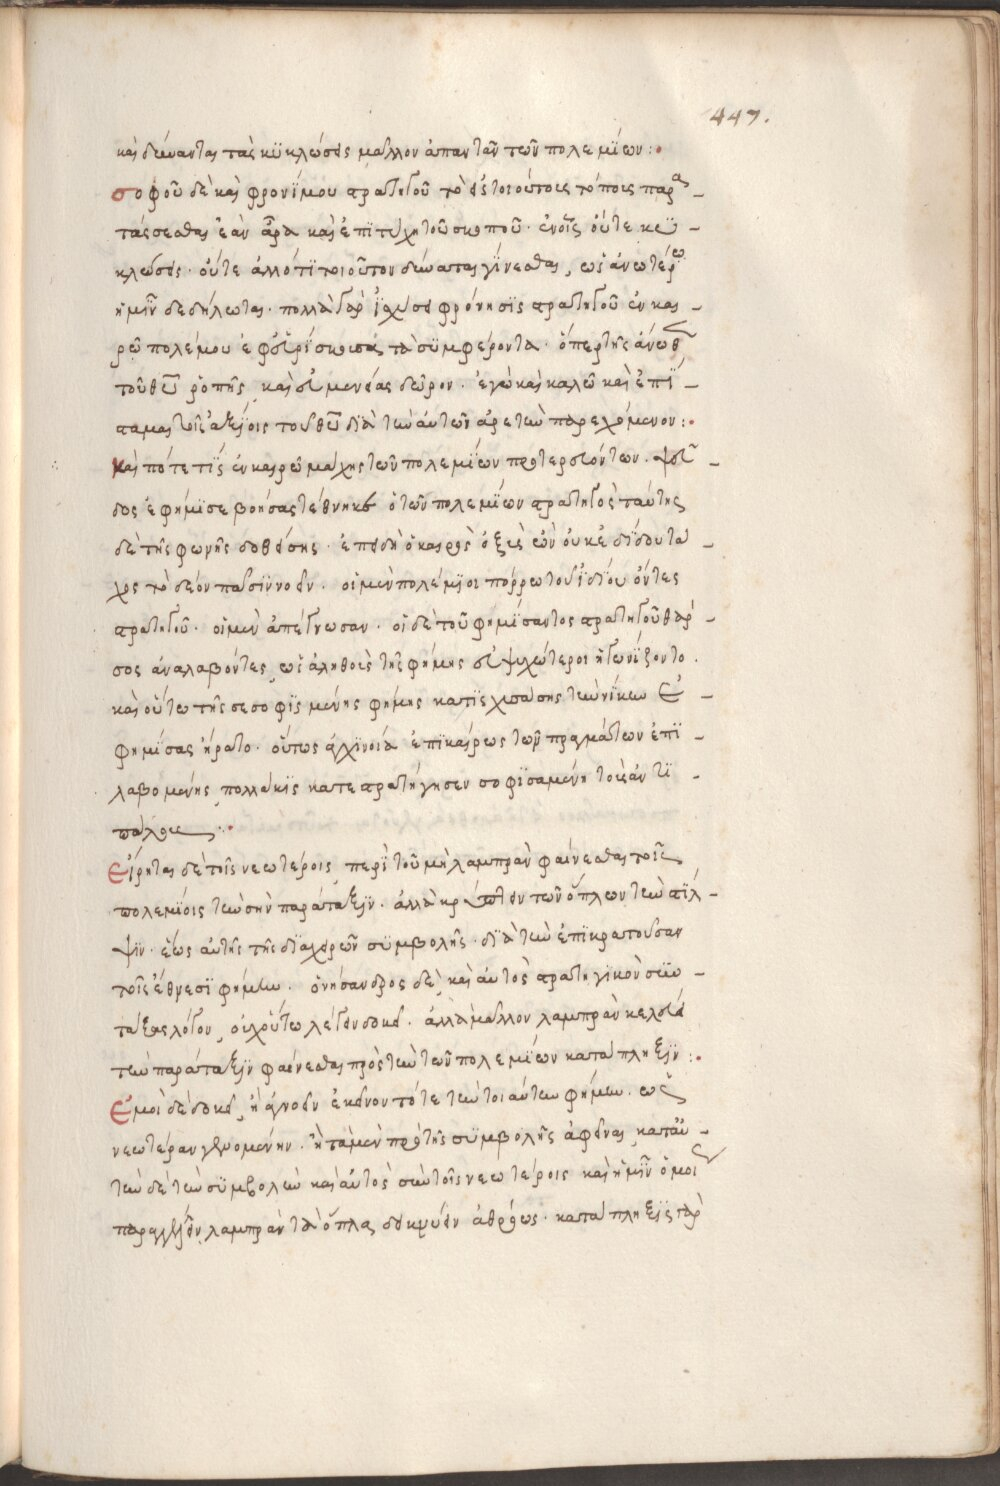 447.
καὶ δύνανται τὰς κϋκλώσεις μᾶλλον ἀπαντᾶν τῶν πολεμΐων :·
σοφοῦ δὲ καὶ φρονΐμου στρατηγοῦ τὸ ἐν τοιούτοις τόποις παρα-
τάσσεσθαι ἐὰν ἆρα καὶ ἐπϊτύχη τοῦ σκοποῦ · ἐν οἷς οὔτε κϋ-
κλώσεις · οὔτε ἄλλό τϊ τοιοῦτον δύναται γΐνεσθαι, ὡς ἀνωτέρω
ἡμῖν δεδήλωται · πολλὰ γὰρ ἰσχύσει φρόνησϊς στρατηγοῦ ἐν και-
ρῶ πολέμου ἐφευρΐσκουσα τὰ σϋμφέροντα · ὅπερ τῆς ἄνωθεν
τοῦ θεοῦ ῥοπῆς καὶ εὐμενείας δῶρον · ἐγὼ καὶ καλῶ καὶ ἐπΐ-
σταμαι τοῖς ἀξΐοις τοῦ θεοῦ δϊὰ τῶν αὐτῶν ἀρετῶν παρεχόμενον :·
Καὶ πότε τΐς ἐν καιρῶ μάχης τῶν πολεμΐων προτερευόντων · ψεῦ-
δος ἐφήμϊσε βοήσας τέθνηκεν ὁ τῶν πολεμΐων στρατηγὸς ταύτης
δὲ τῆς φωνῆς δοθείσης · ἐπειδὴ ὁ καιρὸς ὀξὺς ὢν οὐκ ἐδΐδου τα-
χὺς τὸ δέον πᾶσϊν νοεῖν · οἱ μὲν πολέμϊοι πόρρω τοῦ ϊδΐου ὄντες
στρατηγοῦ · οἱ μὲν ἀπέγνωσαν · οἱ δὲ τοῦ φημΐσαντος στρατηγοῦ θάρ-
σος ἀναλαβόντες, ὡς ἀληθοῦς τῆς φήμης εὐψυχότεροι ἠγωνΐζοντο ·
καὶ οὕτω τῆς σεσοφϊσμένης φήμης κατϊσχυσάσης τὴν νΐκην ὁ εὐ-
φημΐσας ἤρατο · οὕτως ἀγχΐνοια ἐπϊκαίρως τῶν πραγμάτων ἐπϊ-
λαβομένης, πολλάκϊς κατεστρατήγησεν σοφϊσαμένη τοὺς ἀντϊ-
πάλους :·
Εἴρηται δὲ τοῖς νεωτέροις, περὶ τοῦ μὴ λαμπρὰν φαίνεσθαι τοῖς
πολεμΐοις τὴν σὴν παράταξϊν · ἀλλὰ κρύπτειν τῶν ὅπλων τὴν στΐλ-
ψιν · ἕως αὐτῆς τῆς δϊὰ χειρῶν σϋμβολῆς · δϊὰ τὴν ἐπϊκρατοῦσαν
τοῖς ἔθνεσϊ φήμην · ὀνήσανδρος δὲ, καὶ αὐτὸς στρατηγϊκὸν σϋν-
τάξας λόγον, οὐχ οὕτω λέγειν δοκεῖ · ἀλλὰ μᾶλλον λαμπρὰν κελεύει
τὴν παράταξϊν φαίνεσθαι πρὸς τὴν τῶν πολεμΐων κατάπληξϊν :·
Ἐμοὶ δὲ δοκεῖ, ἢ ἀγνοεῖν ἐκεῖνον τότε τὴν τοιαύτην φήμην · ὡς
νεωτέραν γενομένην · ἢ τὰ μὲν πρὸ τῆς σϋμβολῆς ἀφεῖναι, κατ' αὐ-
τὴν δὲ τὴν σϋμβολὴν καὶ αὐτὸς σὺν τοῖς νεωτέροις καὶ ἡμῖν ὁμοίως
παραγγέλλειν, λαμπρὰν τὰ ὅπλα, δεικνύειν ἀθρόως · κατάπληξϊς γὰρ